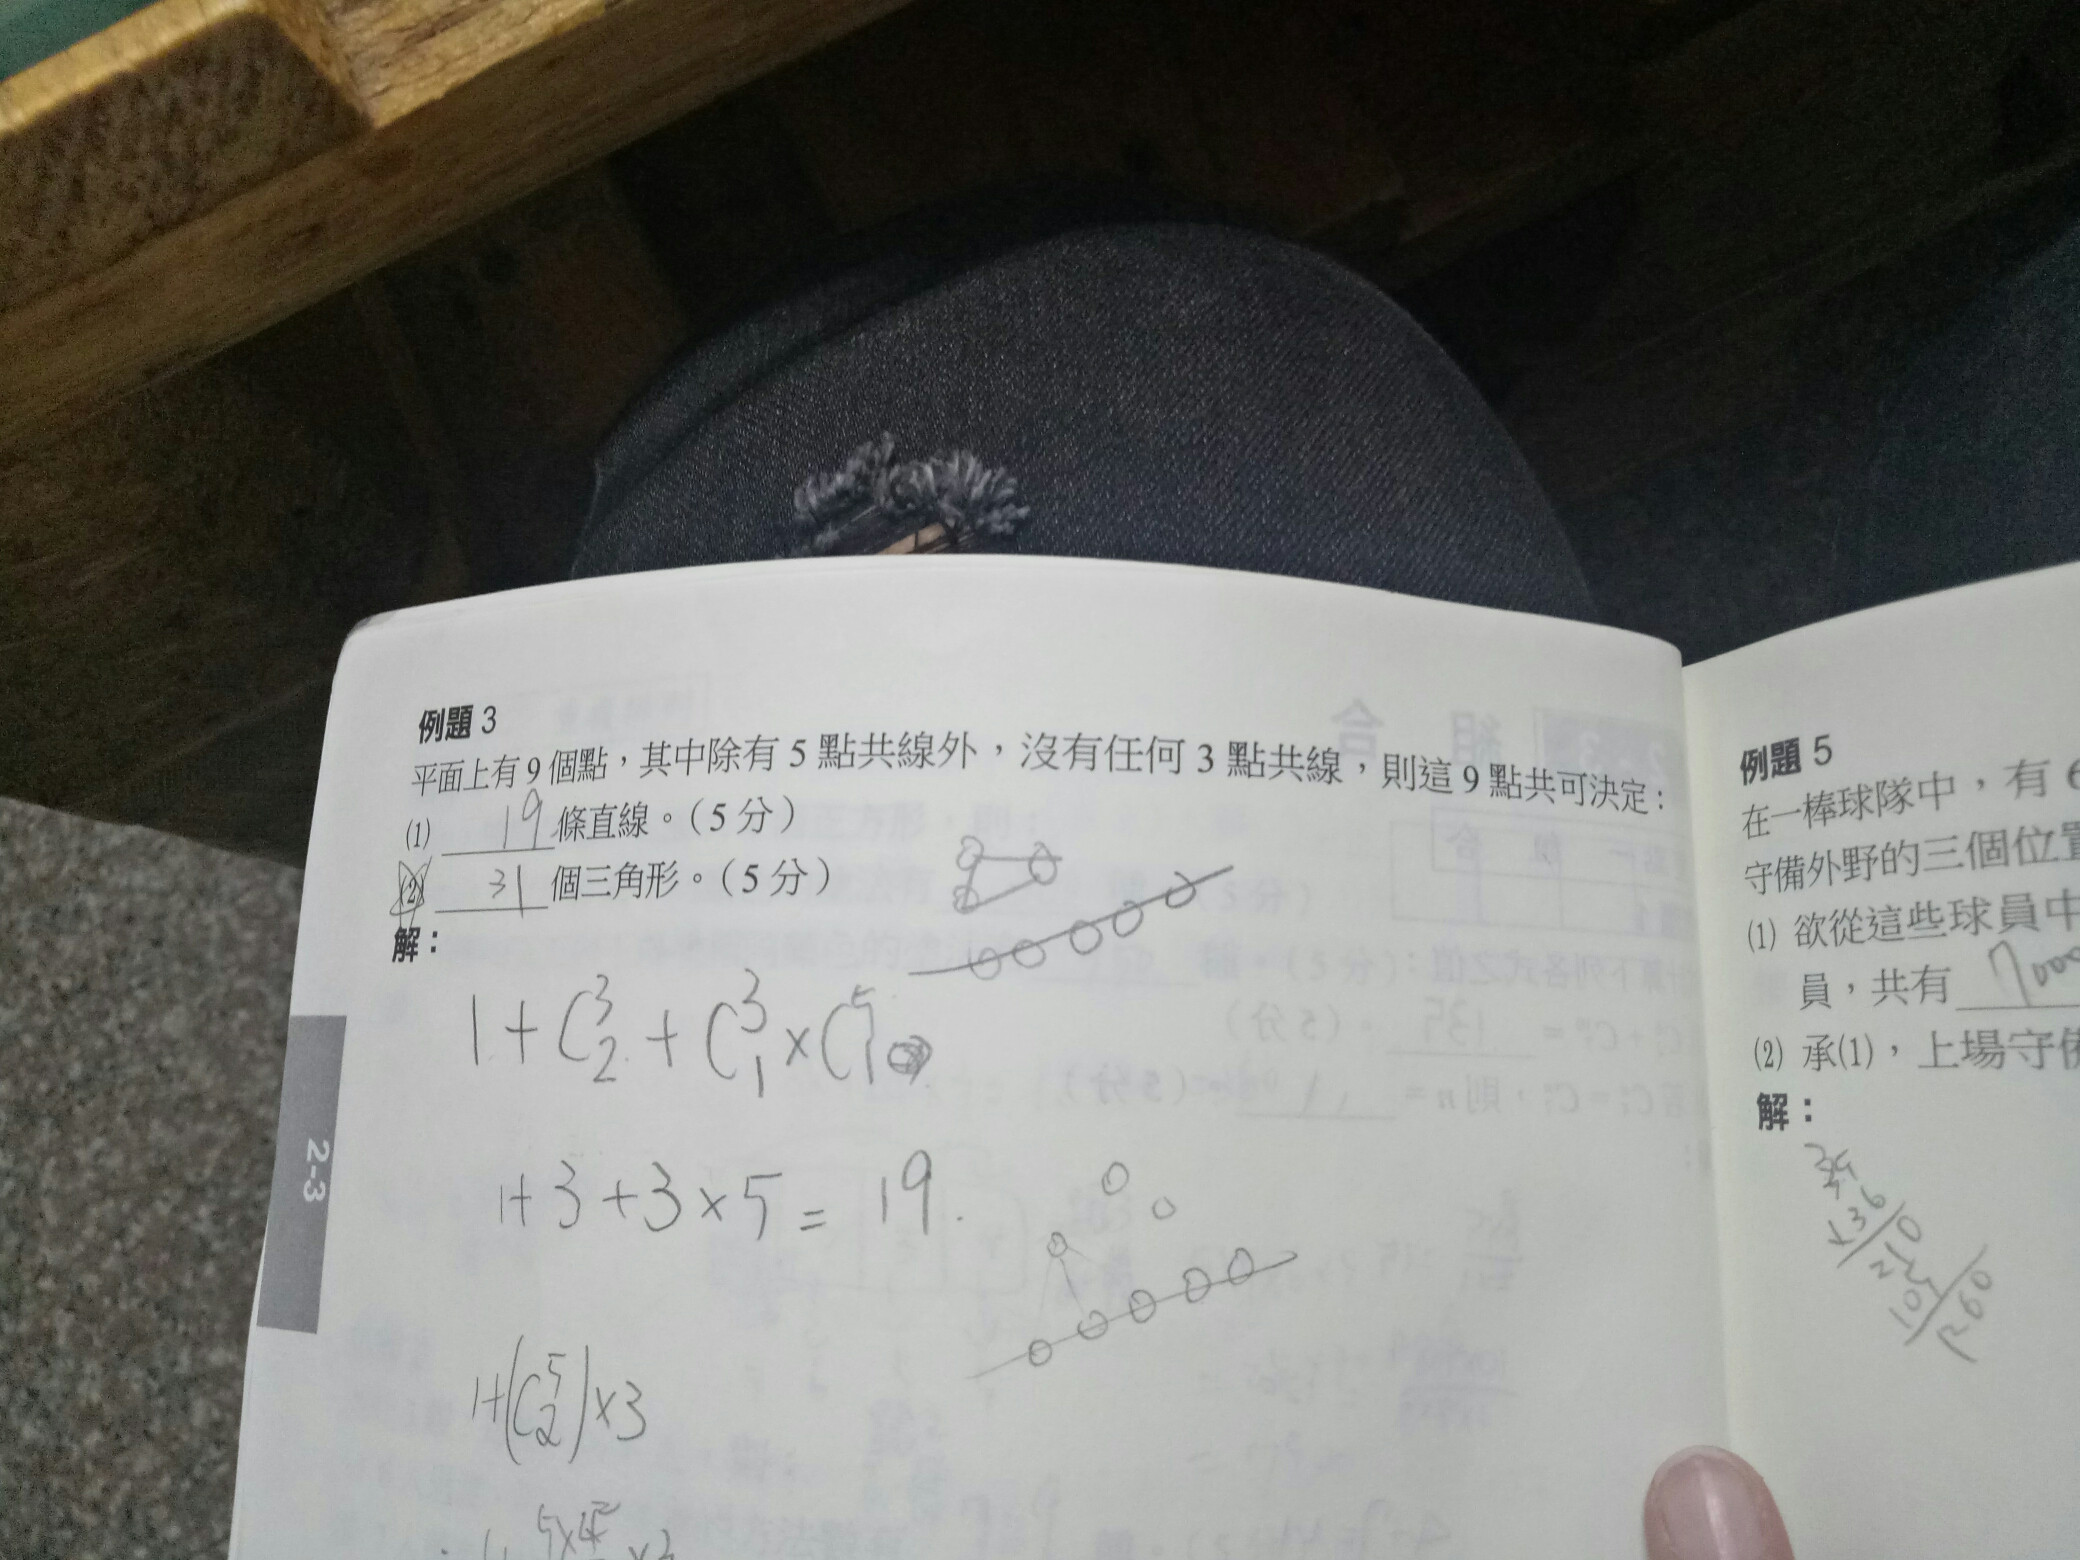 例題 3
平面上有 9 個點，其中除有 5 點共線外，沒有任何 3 點共線，則這 9 點共可決定：
(1) 19 條直線。（5 分）
(2) 31 個三角形。（5 分）
解：
1 + C³₂ + C³₁ × C⁵₁
1 + 3 + 3 × 5 = 19.
1 + (C⁵₂) × 3
2-3
例題 5
在一棒球隊中，有 6
守備外野的三個位置
(1) 欲從這些球員中
員，共有
(2) 承(1)，上場守備
解：
35
×36
210
105
1260